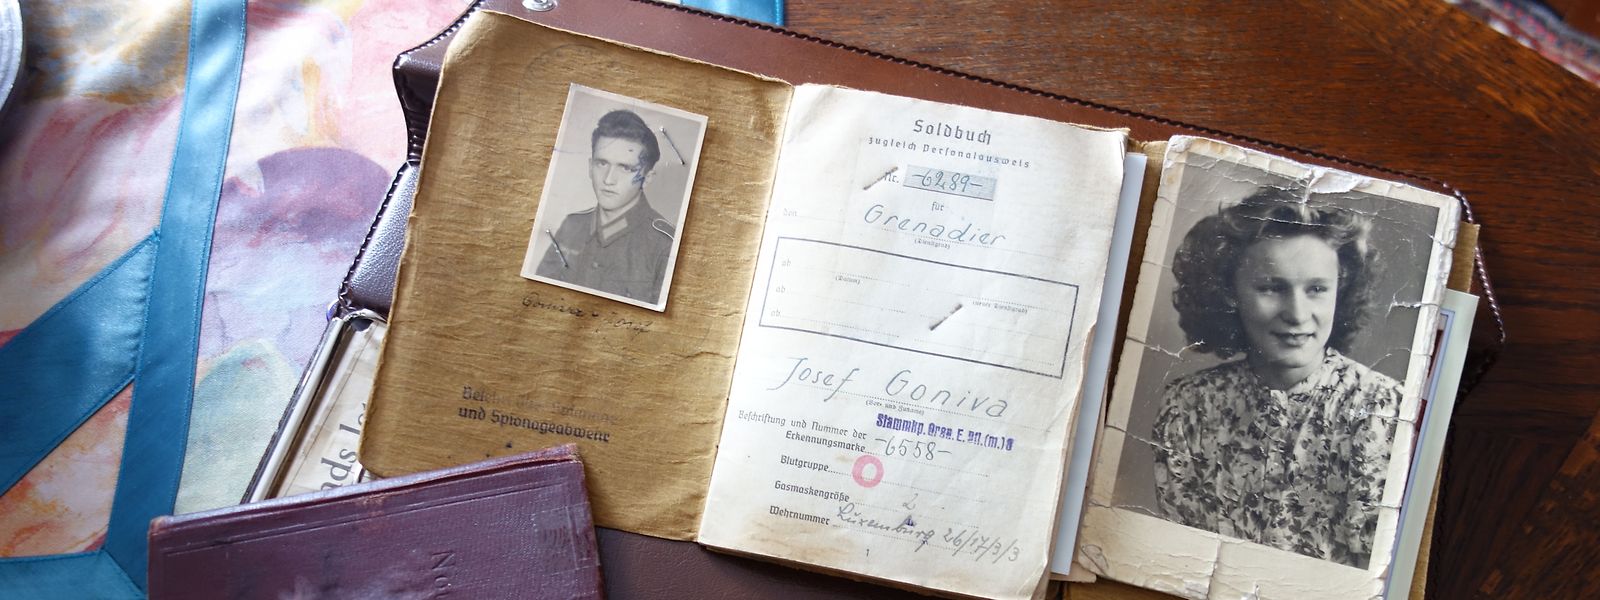 Goniva - Josef
und Spionageabwehr
Soldbuch
zugleich Personalausweis
Nr. -6289-
für
den Grenadier
(Dienstgrad)
ab
(Datum)
(neuer Dienstgrad)
ab
ab
Josef Goniva
(Vor- und Zuname)
Beschriftung und Nummer der
Stammkp. Gren. E. Btl. (m.) 8
Erkennungsmarke -6558-
Blutgruppe O
Gasmaskengröße 2
Wehrnummer Luxemburg 26/17/3/3
1
No.